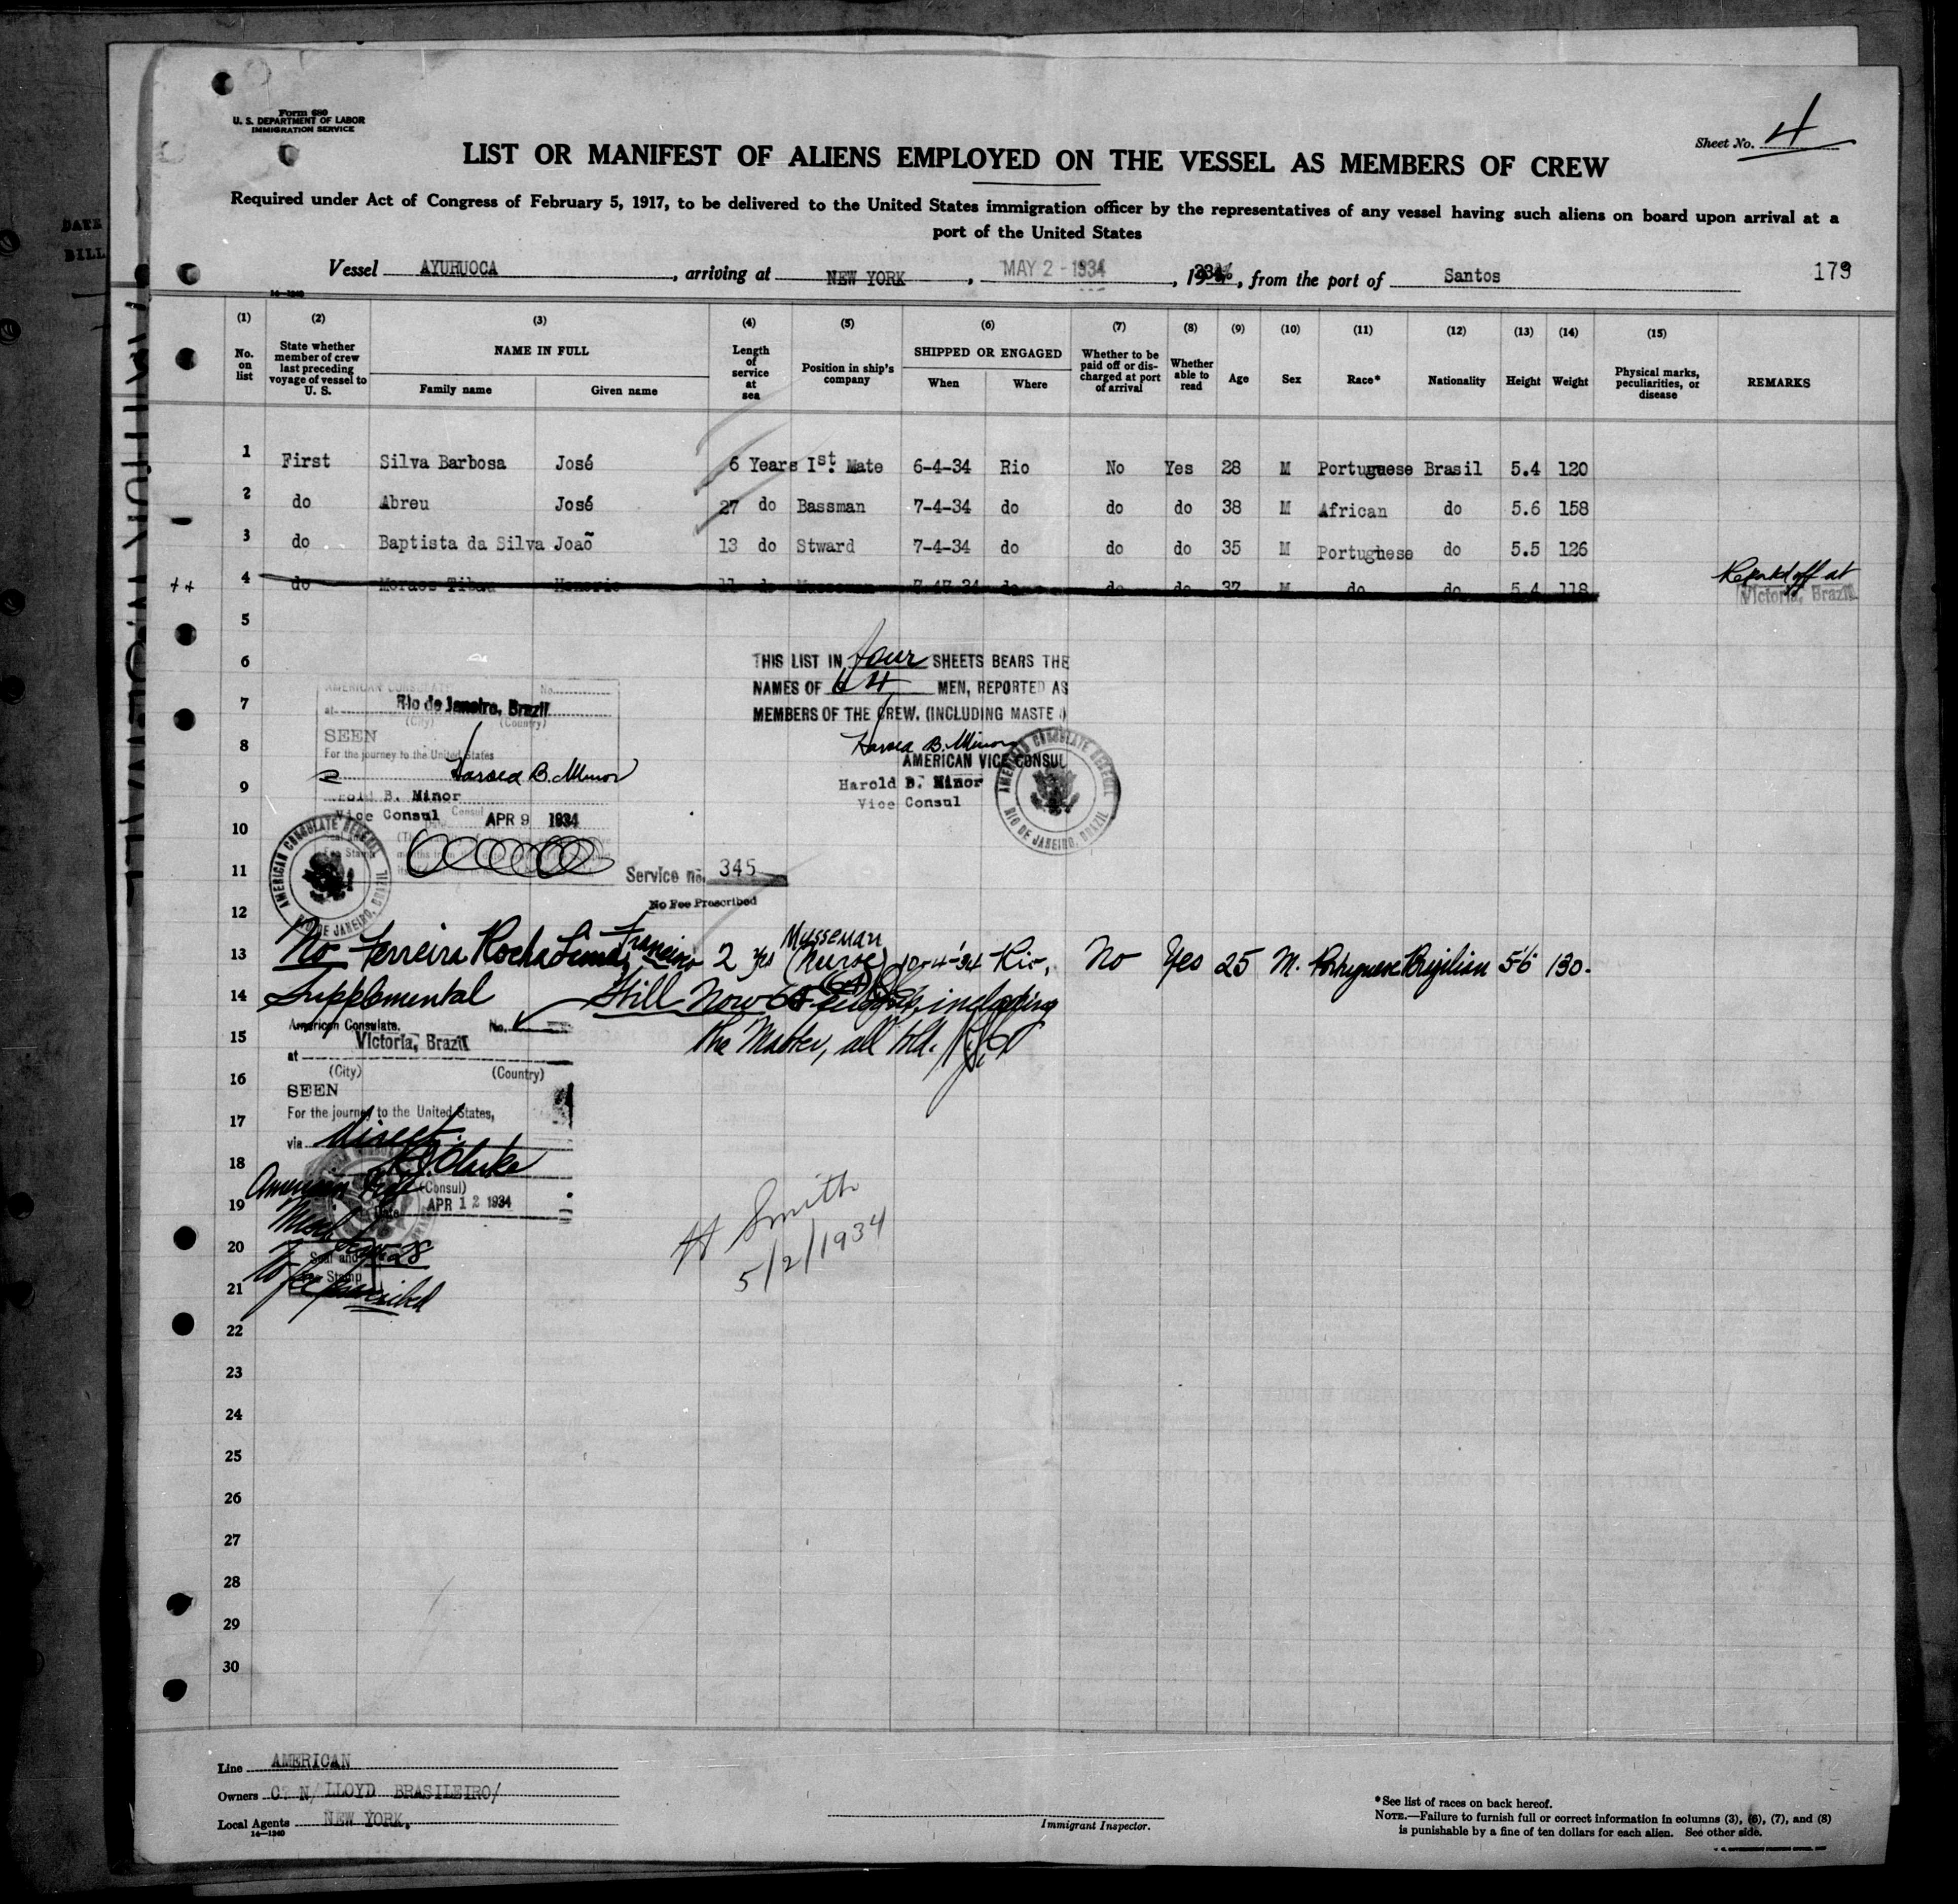 DATE
BILL
Form 680
U. S. DEPARTMENT OF LABOR
IMMIGRATION SERVICE
Sheet No. 4
LIST OR MANIFEST OF ALIENS EMPLOYED ON THE VESSEL AS MEMBERS OF CREW
Required under Act of Congress of February 5, 1917, to be delivered to the United States immigration officer by the representatives of any vessel having such aliens on board upon arrival at a
port of the United States
Vessel AYURUOCA, arriving at NEW YORK, MAY 2 - 1934, 1934, from the port of Santos 179
14-1240
(1) (2) (3) (4) (5) (6) (7) (8) (9) (10) (11) (12) (13) (14) (15)
No. on list
State whether member of crew last preceding voyage of vessel to U. S.
NAME IN FULL
Family name Given name
Length of service at sea
Position in ship's company
SHIPPED OR ENGAGED
When Where
Whether to be paid off or discharged at port of arrival
Whether able to read
Age Sex Race* Nationality Height Weight
Physical marks, peculiarities, or disease
REMARKS
1 First Silva Barbosa José 6 Years 1st. Mate 6-4-34 Rio No Yes 28 M Portuguese Brasil 5.4 120
2 do Abreu José 27 do Bassman 7-4-34 do do do 38 M African do 5.6 158
3 do Baptista da Silva Joaõ 13 do Stward 7-4-34 do do do 35 M Portughese do 5.5 126
4 do Moraes 11 do do do do 37 M do do 5.4 118
off at
Victoria, Brazil
5
6
7
8
9
10
11
12
THIS LIST IN four SHEETS BEARS THE
NAMES OF 64 MEN, REPORTED AS
MEMBERS OF THE CREW. (INCLUDING MASTE )
Harold B. Minor
AMERICAN VICE CONSUL
Harold B. Minor
Vice Consul
AMERICAN CONSULATE GENERAL
RIO DE JANEIRO, BRAZIL
AMERICAN CONSULATE No.
at Rio de Janeiro, Brazil
(City) (Country)
SEEN
For the journey to the United States
Harold B. Minor
Harold B. Minor
Vice Consul
APR 9 1934
AMERICAN CONSULATE GENERAL
RIO DE JANEIRO, BRAZIL
Service no. 345
No Fee Prescribed
13 No Ferreira Rocha Lima, Francisco 2 yrs Musseman (Nurse) 10-4-'34 Rio, No Yes 25 M. Portuguese Brazilian 5'6 130.
14 Supplemental Still Now 64 including
15 the Master, all told.
16
17
18
19
20
21
American Consulate. No.
at Victoria, Brazil
(City) (Country)
SEEN
For the journey to the United States,
via direct.
Clarke
American
(Consul)
APR 12 1934
Seal and
Fee Stamp
No fee prescribed
H Smith
5/2/1934
22
23
24
25
26
27
28
29
30
Line AMERICAN
Owners C. N/ LLOYD BRASILEIRO/
Local Agents NEW YORK.
14-1240
Immigrant Inspector.
*See list of races on back hereof.
NOTE.—Failure to furnish full or correct information in columns (3), (6), (7), and (8)
is punishable by a fine of ten dollars for each alien. See other side.